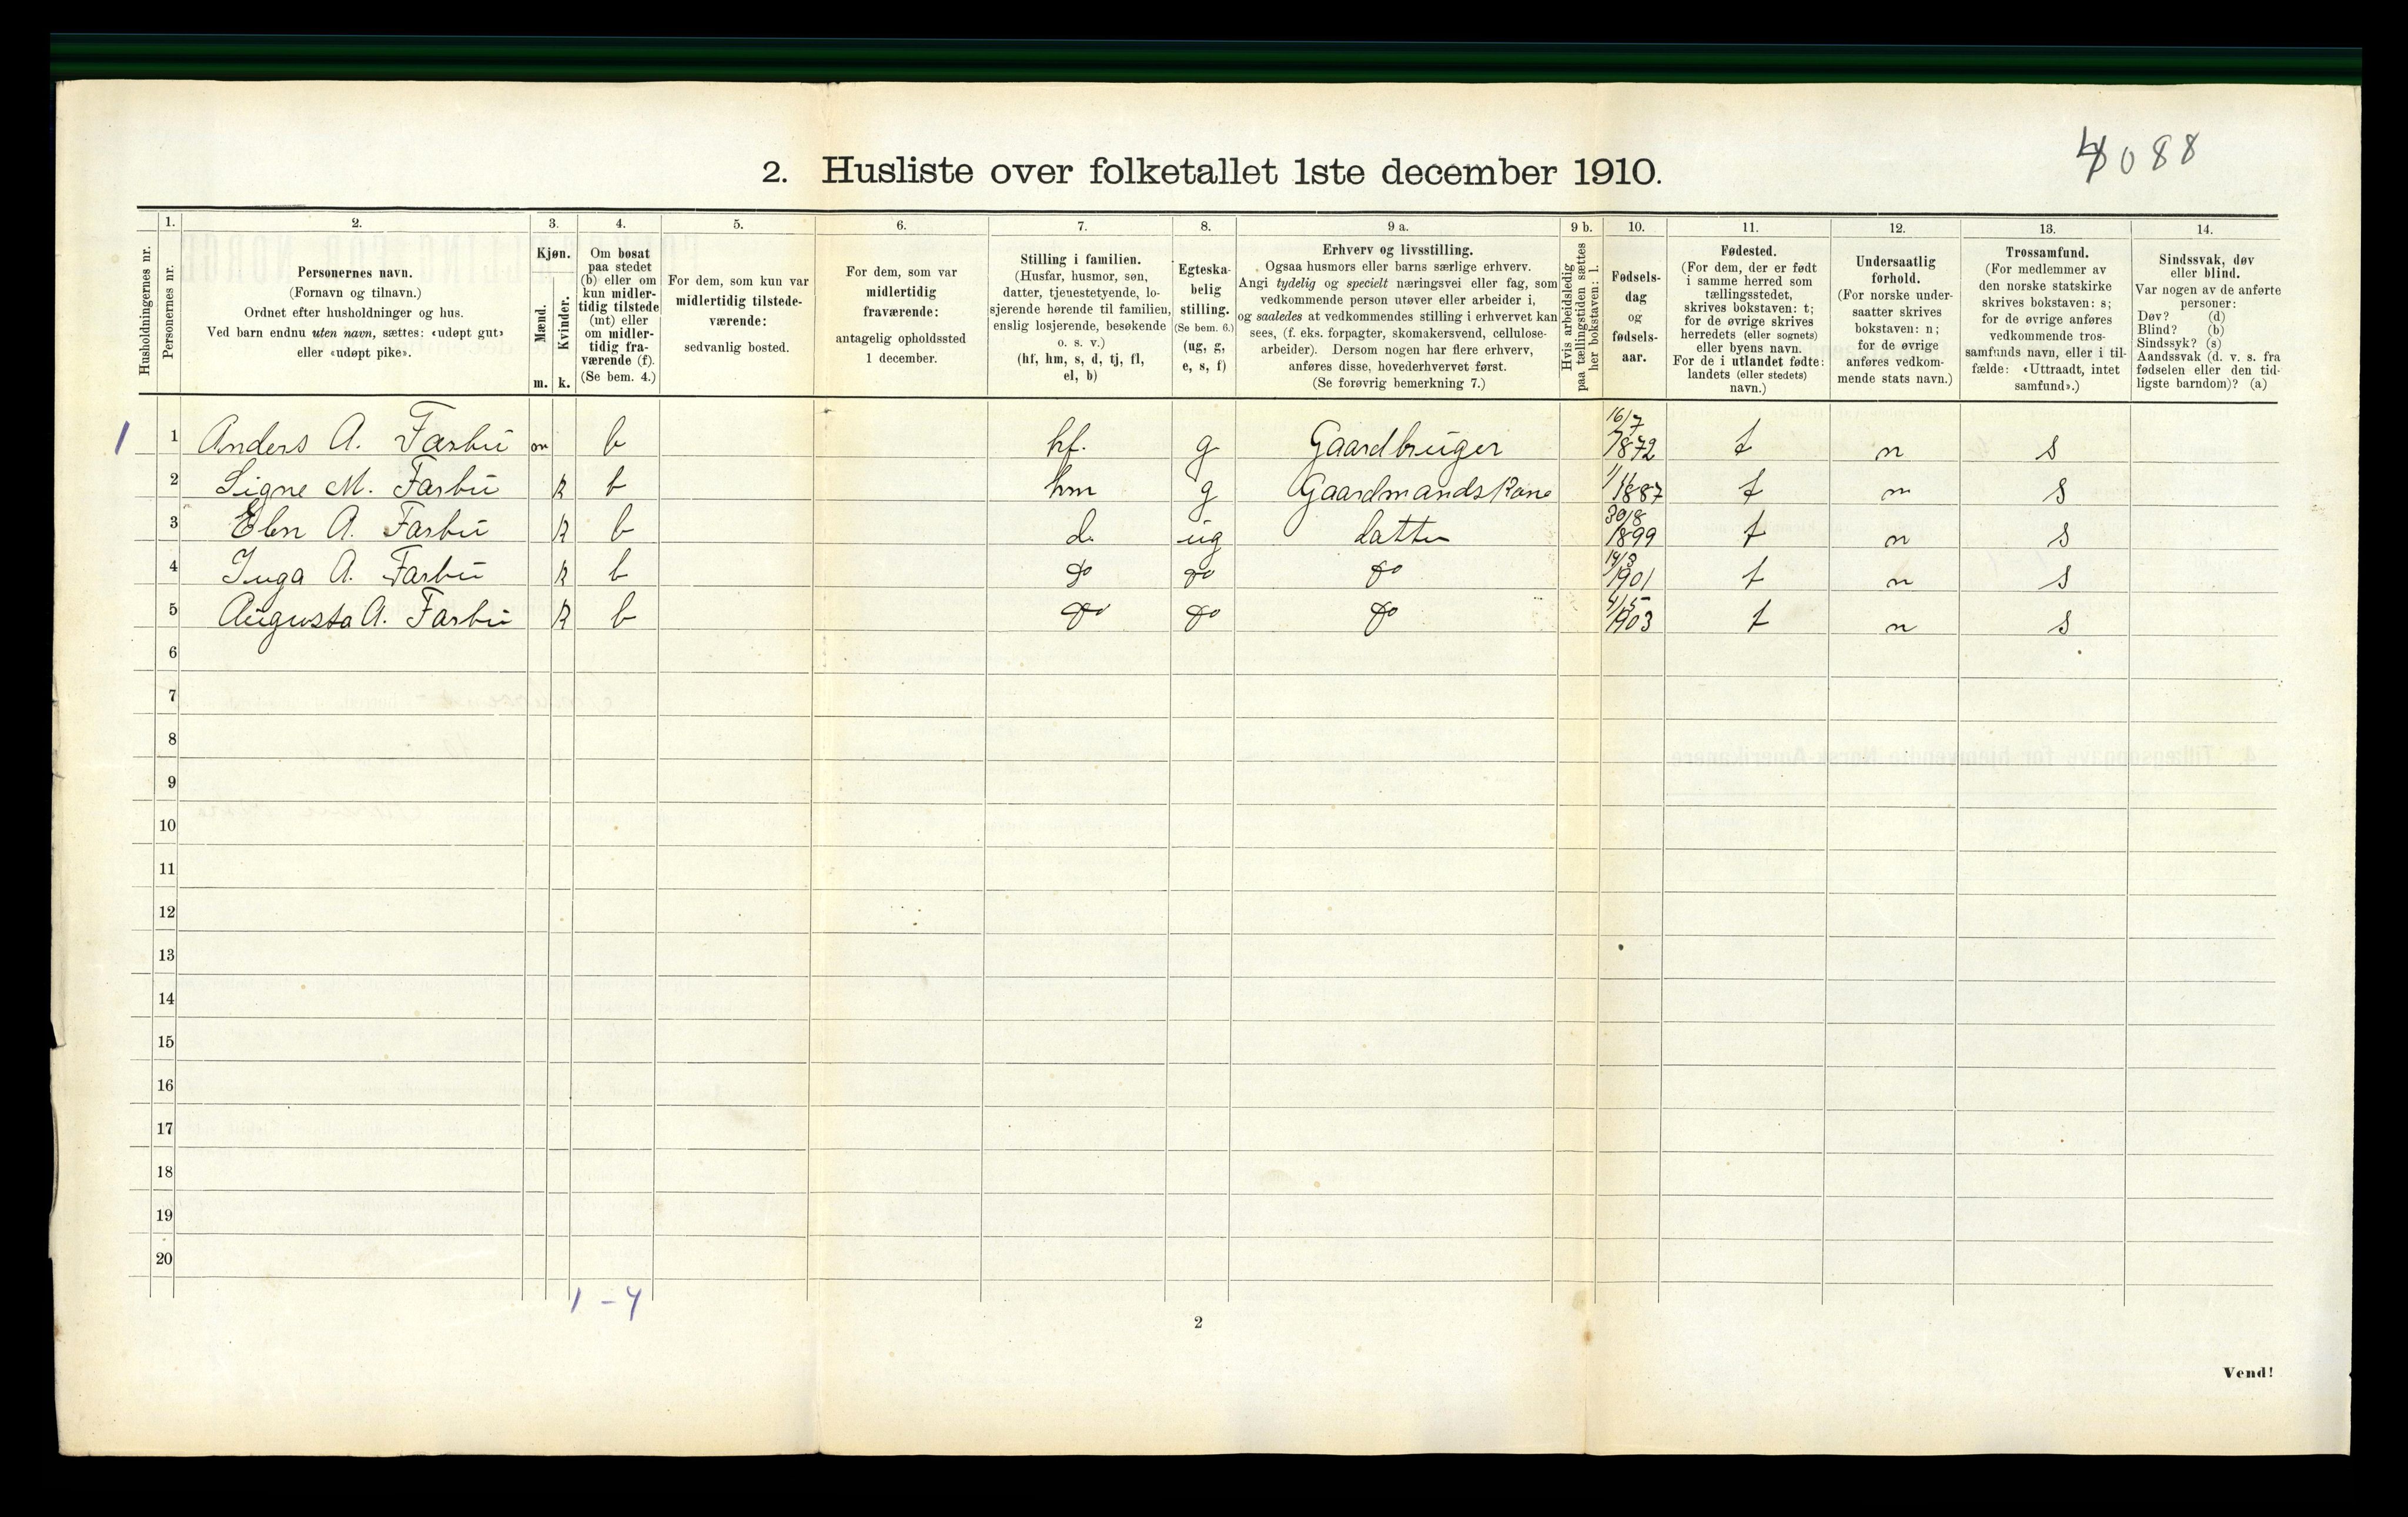 4088
2. Husliste over folketallet 1ste december 1910.
Husholdningernes nr.
1.
Personernes nr.
2.
Personernes navn.
(Fornavn og tilnavn.)
Ordnet efter husholdninger og hus.
Ved barn endnu uten navn, sættes: «udøpt gut»
eller «udøpt pike».
3.
Kjøn.
Mænd.
Kvinder.
m. k.
4.
Om bosat
paa stedet
(b) eller om
kun midler-
tidig tilstede
(mt) eller
om midler-
tidig fra-
værende (f).
(Se bem. 4.)
5.
For dem, som kun var
midlertidig tilstede-
værende:
sedvanlig bosted.
6.
For dem, som var
midlertidig
fraværende:
antagelig opholdssted
1 december.
7.
Stilling i familien.
(Husfar, husmor, søn,
datter, tjenestetyende, lo-
sjerende hørende til familien,
enslig losjerende, besøkende
o. s. v.)
(hf, hm, s, d, tj, fl,
el, b)
8.
Egteska-
belig
stilling.
(Se bem. 6.)
(ug, g,
e, s, f)
9 a.
Erhverv og livsstilling.
Ogsaa husmors eller barns særlige erhverv.
Angi tydelig og specielt næringsvei eller fag, som
vedkommende person utøver eller arbeider i,
og saaledes at vedkommendes stilling i erhvervet kan
sees, (f. eks. forpagter, skomakersvend, cellulose-
arbeider). Dersom nogen har flere erhverv,
anføres disse, hovederhvervet først.
(Se forøvrig bemerkning 7.)
9 b.
Hvis arbeidsledig
paa tællingstiden sættes
her bokstaven: l.
10.
Fødsels-
dag
og
fødsels-
aar.
11.
Fødested.
(For dem, der er født
i samme herred som
tællingsstedet,
skrives bokstaven: t;
for de øvrige skrives
herredets (eller sognets)
eller byens navn.
For de i utlandet fødte:
landets (eller stedets)
navn.)
12.
Undersaatlig
forhold.
(For norske under-
saatter skrives
bokstaven: n;
for de øvrige
anføres vedkom-
mende stats navn.)
13.
Trossamfund.
(For medlemmer av
den norske statskirke
skrives bokstaven: s;
for de øvrige anføres
vedkommende tros-
samfunds navn, eller i til-
fælde: «Uttraadt, intet
samfund».)
14.
Sindssvak, døv
eller blind.
Var nogen av de anførte
personer:
Døv? (d)
Blind? (b)
Sindssyk? (s)
Aandssvak (d. v. s. fra
fødselen eller den tid-
ligste barndom)? (a)
1 1 Anders A. Farbu m b hf. g Gaardbruger 16/7 1872 t n s
2 Signe M. Farbu k b hm g Gaardmandskone 1887 t n s
3 Elen A. Farbu k b d. ug datter 30/8 1899 t n s
4 Inga A. Farbu k b do do do 14/3 1901 t n s
5 Augusta A. Farbu k b do do do 4/5 1903 t n s
6
7
8
9
10
11
12
13
14
15
16
17
18
19
20
1 - 4
2
Vend!